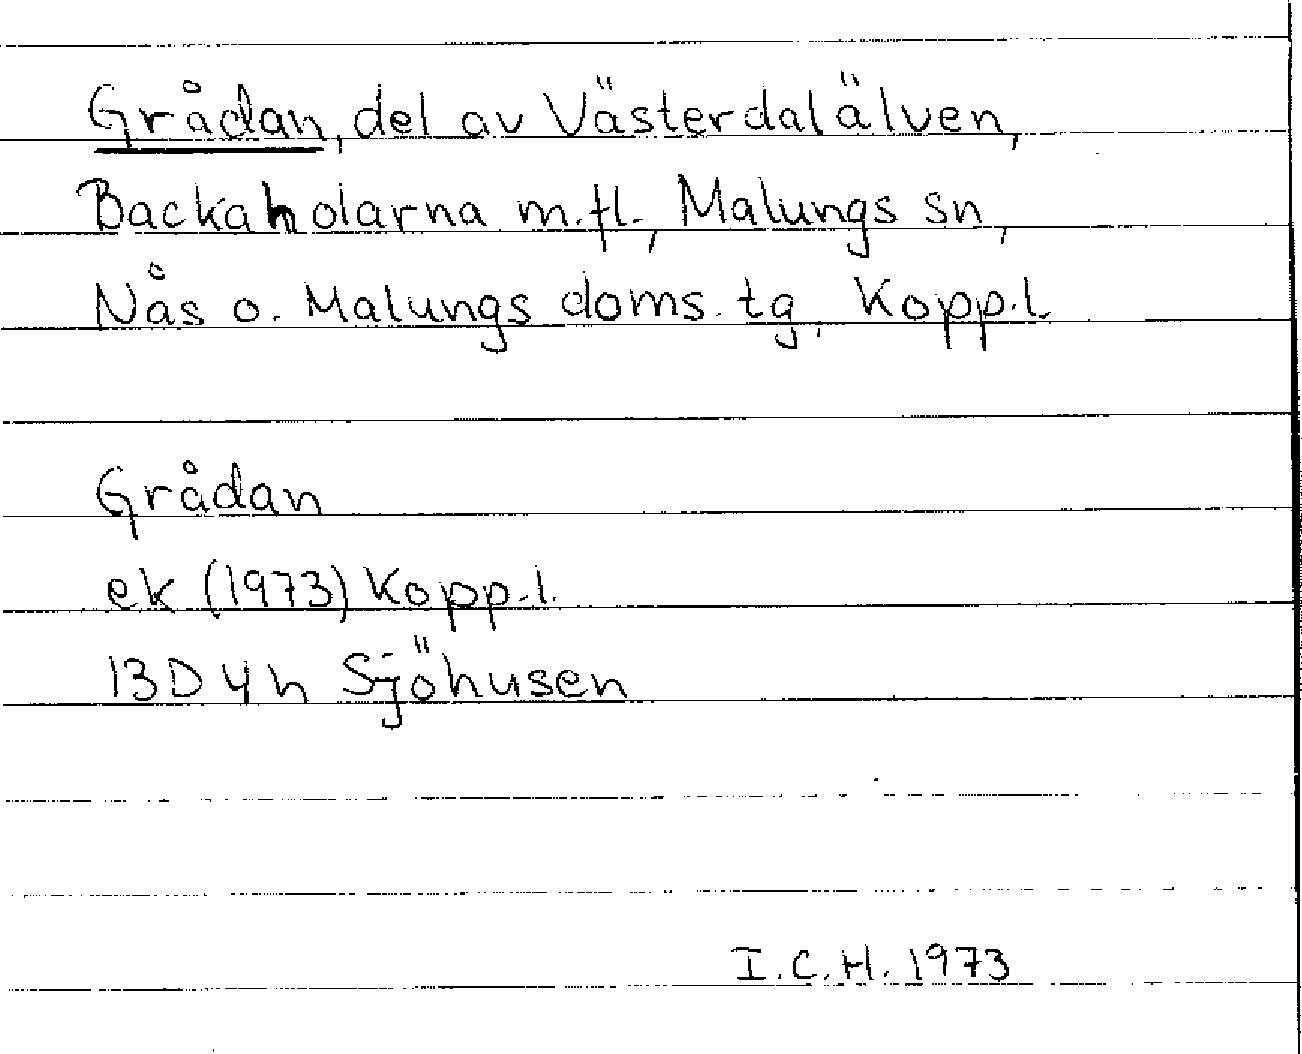 Grådan, del av Västerdalälven,
Backaholarna m.fl., Malungs sn,
Nås o. Malungs doms. tg. Kopp.l.
Grådan
ek (1973) Kopp.l.
13D4h Sjöhusen
I.C.H. 1973